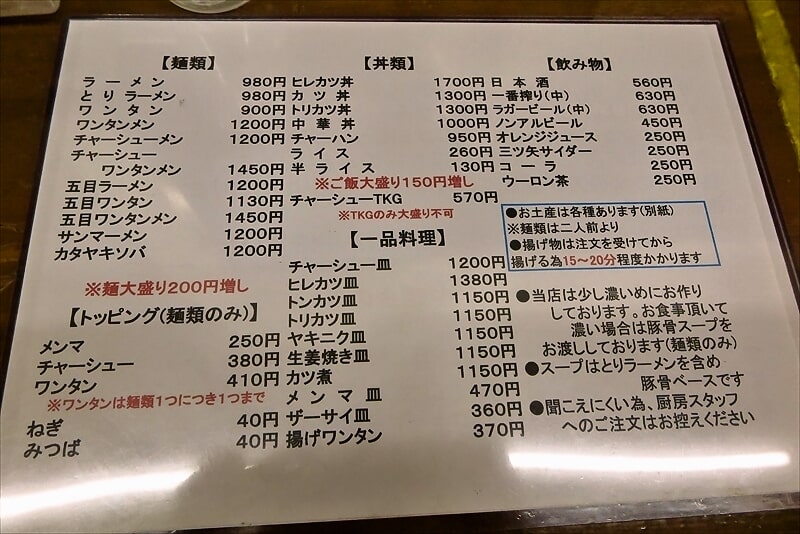 【麺類】
ラーメン 980円
とりラーメン 980円
ワンタン 900円
ワンタンメン 1200円
チャーシューメン 1200円
チャーシュー
ワンタンメン 1450円
五目ラーメン 1200円
五目ワンタン 1130円
五目ワンタンメン 1450円
サンマーメン 1200円
カタヤキソバ 1200円
※麺大盛り200円増し
【トッピング(麺類のみ)】
メンマ 250円
チャーシュー 380円
ワンタン 410円
※ワンタンは麺類1つにつき1つまで
ねぎ 40円
みつば 40円
【丼類】
ヒレカツ丼 1700円
カツ丼 1300円
トリカツ丼 1300円
中華丼 1000円
チャーハン 950円
ライス 260円
半ライス 130円
※ご飯大盛り150円増し
チャーシューTKG 570円
※TKGのみ大盛り不可
【一品料理】
チャーシュー皿 1200円
ヒレカツ皿 1380円
トンカツ皿 1150円
トリカツ皿 1150円
ヤキニク皿 1150円
生姜焼き皿 1150円
カツ煮 1150円
メンマ皿 470円
ザーサイ皿 360円
揚げワンタン 370円
【飲み物】
日本酒 560円
一番搾り(中) 630円
ラガービール(中) 630円
ノンアルビール 450円
オレンジジュース 250円
三ツ矢サイダー 250円
コーラ 250円
ウーロン茶 250円
●お土産は各種あります(別紙)
※麺類は二人前より
●揚げ物は注文を受けてから
揚げる為15～20分程度かかります
●当店は少し濃いめにお作り
しております。お食事頂いて
濃い場合は豚骨スープを
お渡ししております(麺類のみ)
●スープはとりラーメンを含め
豚骨ベースです
●聞こえにくい為、厨房スタッフ
へのご注文はお控えください